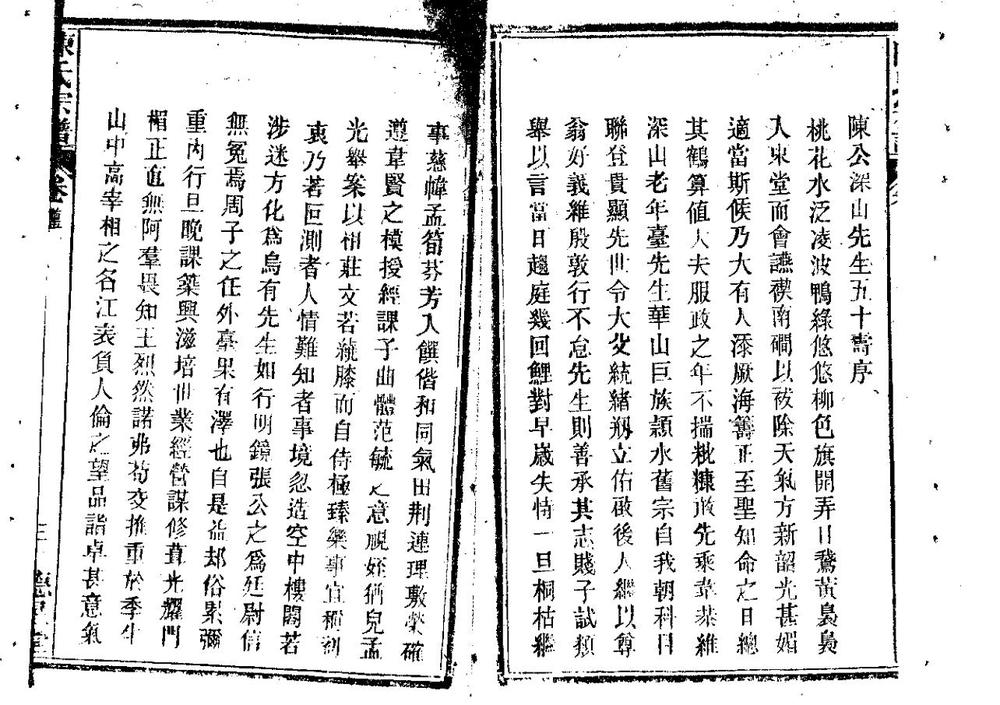 陳公深山先生五十壽序
桃花水泛凌波鴨綠悠悠柳色旗開弄日鵞黃裊裊
入東堂而會讌禊南澗以祓除天氣方新韶光甚媚
適當斯候乃大有人添厥海籌正至聖知命之日總
其鶴算值大夫服政之年不揣粃糠敢先乘韋恭維
深山老年臺先生華山巨族潁水舊宗自我朝科目
聯登貴顯先世令大父統緒剏立佑啟後人繼以尊
翁好義維殷敦行不怠先生則善承其志賤子試類
舉以言當日趨庭幾回鯉對早歲失恃一旦桐枯繼
事慈幃孟筍芬芳入饌偕和同氣田荆連理敷榮確
遵韋賢之模授經課子曲體范毓之意脫姪猶兒孟
光舉案以相莊文若繞膝而自侍極臻樂事宜稱
衷乃著叵測者人情難知者事境忽造空中樓閣若
涉迷方化為烏有先生如行明鏡張公之為廷尉信
無冤焉周子之任外臺果有澤也自是益却俗累彌
重內行旦晚課築興滋培世業經營謀修葺光耀門
楣正直無阿羣畏知王烈然諾弗苟交推重於季
山中高宰相之名江表負人倫之望品詣卓甚意氣
陳氏宗譜 卷
三